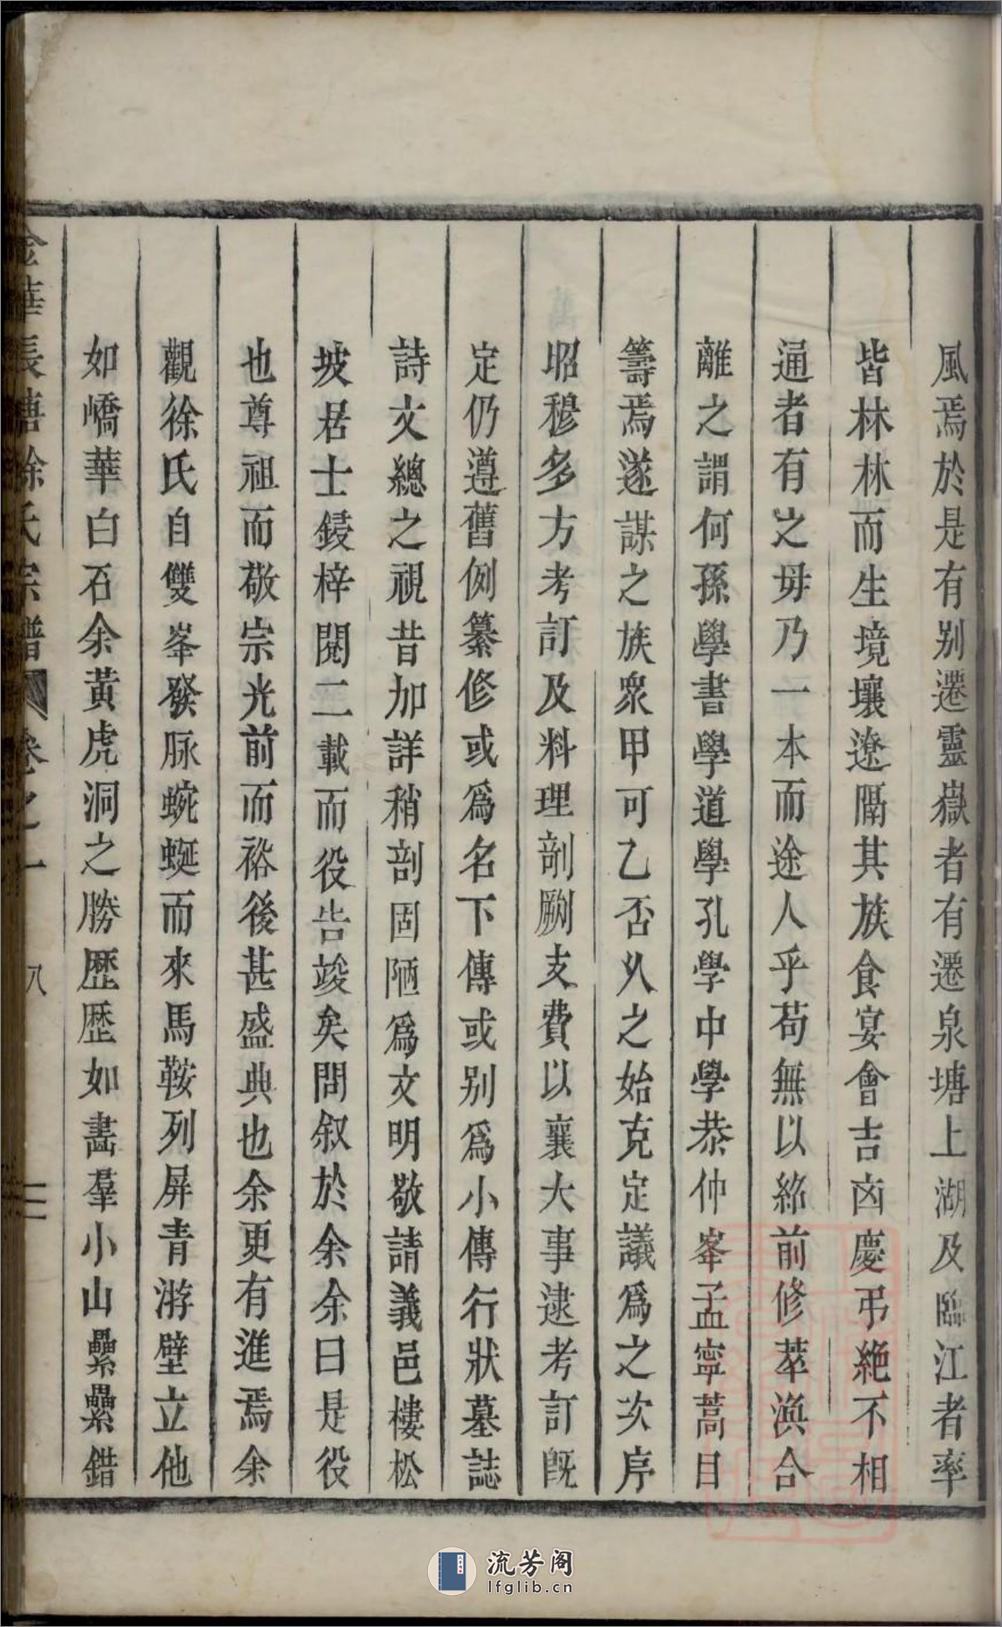 風焉於是有别遷靈嶽者有遷泉塘上湖及臨江者率
皆林林而生境壤遼隔其族食宴會吉凶慶弔絶不相
通者有之毋乃一本而途人乎苟無以紹前修萃渙合
離之謂何孫學書學道學孔學中學恭仲峯孟寧蒿目
籌焉遂謀之族衆甲可乙否久之始克定議爲之次序
昭穆多方考訂及料理剞劂支費以襄大事逮考訂旣
定仍遵舊例纂修或爲名下傳或别爲小傳行狀墓誌
詩文總之視昔加詳稍剖固陋爲文明敬請義邑樓松
坡居士鋟梓閱二載而役告竣矣問叙於余余曰是役
也尊祖而敬宗光前而裕後甚盛典也余更有進焉余
觀徐氏自雙峯發脉蜿蜒而來馬鞍列屏青游壁立他
如嶠華白石余黃虎洞之勝歷歷如畵羣小山纍纍錯
金華長塘徐氏宗譜 卷之一 八
流芳阁
lfglib.cn